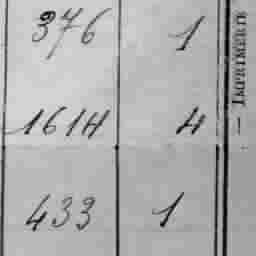 376 1
1614 4
433 1
— IMPRIMERIE